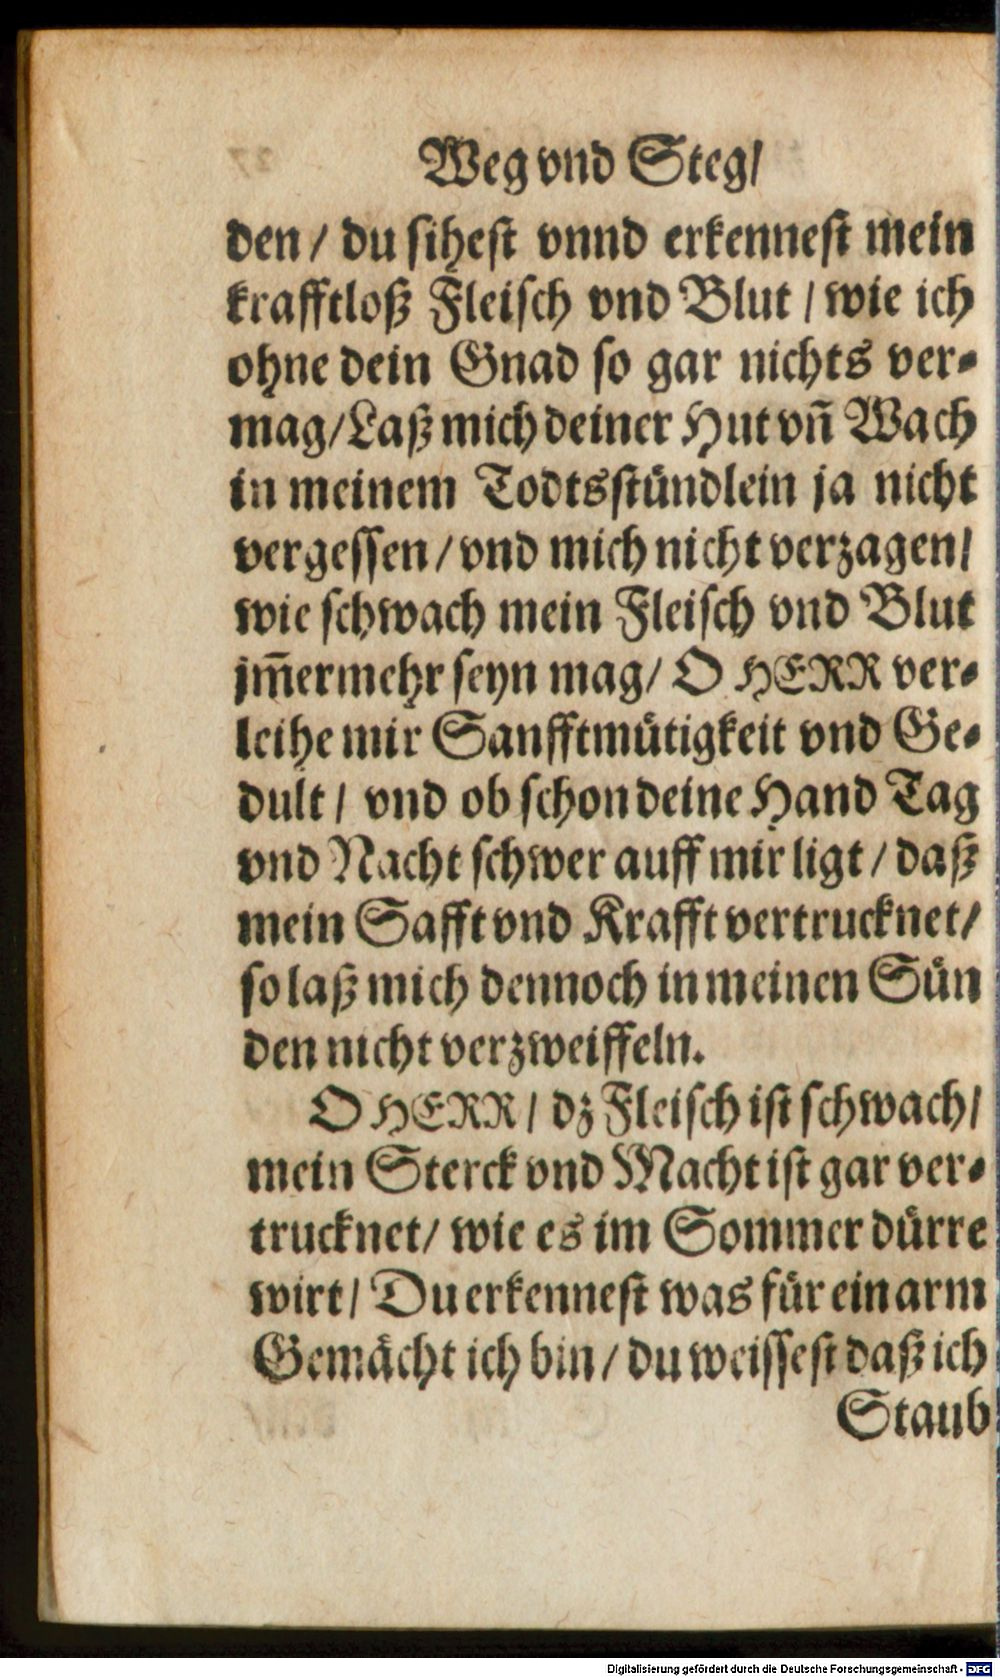 Weg vnd Steg/
den / du sihest vnnd erkennest mein
krafftloß Fleisch vnd Blut / wie ich
ohne dein Gnad so gar nichts ver-
mag/Laß mich deiner Hut vñ Wach
in meinem Todtsstündlein ja nicht
vergessen / vnd mich nicht verzagen/
wie schwach mein Fleisch vnd Blut
jm̃ermehr seyn mag/ O HERR ver-
leihe mir Sanfftmütigkeit vnd Ge-
dult / vnd ob schon deine Hand Tag
vnd Nacht schwer auff mir ligt / daß
mein Safft vnd Krafft vertrucknet/
so laß mich dennoch in meinen Sün
den nicht verzweiffeln.
O HERR / dz Fleisch ist schwach/
mein Sterck vnd Macht ist gar ver-
trucknet/ wie es im Sommer dürre
wirt/ Du erkennest was für ein arm
Gemächt ich bin / du weissest daß ich
Staub
Digitalisierung gefördert durch die Deutsche Forschungsgemeinschaft - DFG